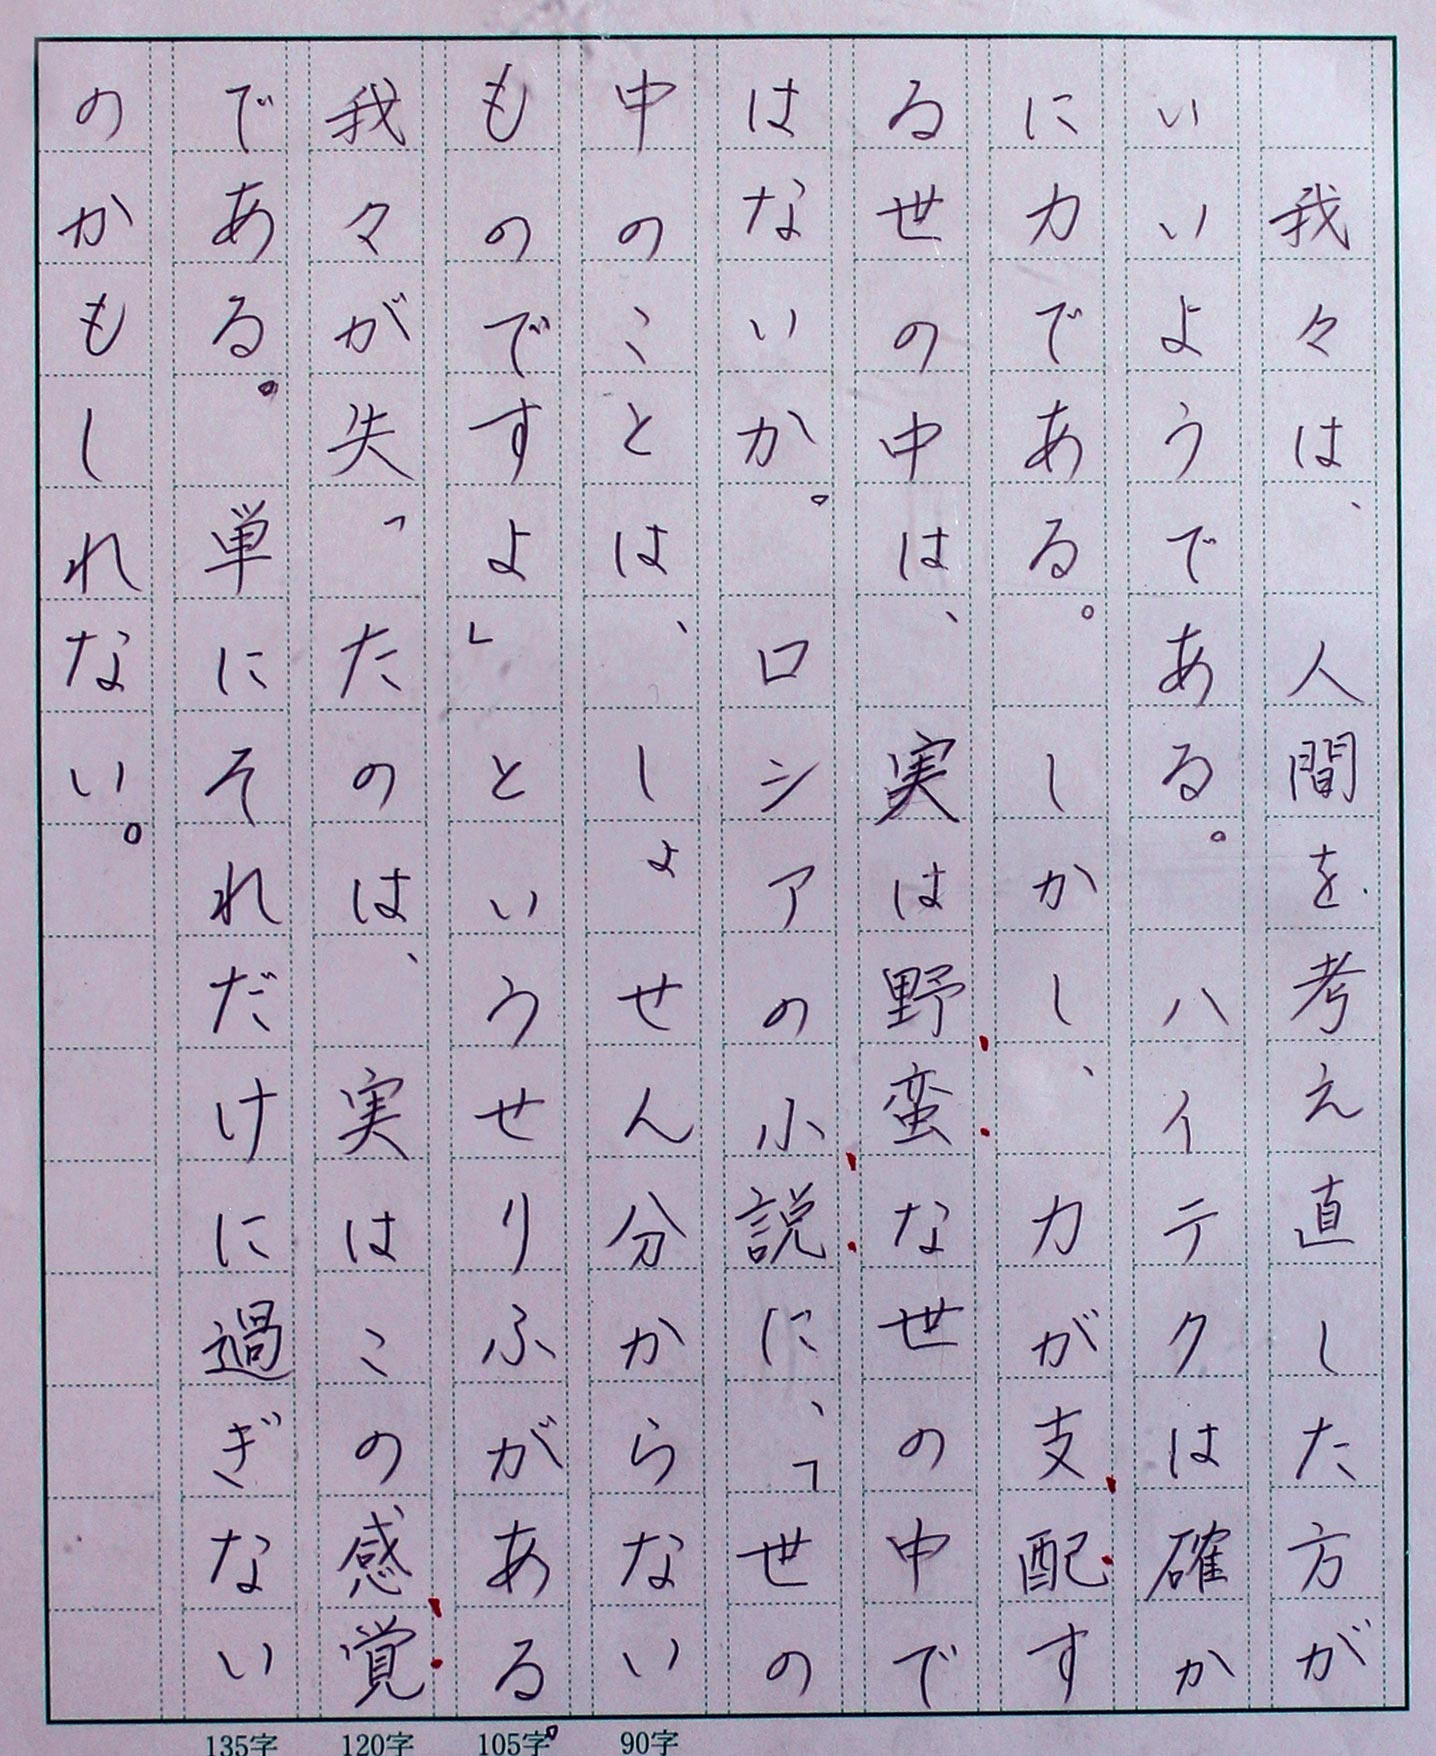 我々は、人間を考え直した方が
いいようである。ハイテクは確か
に力である。しかし、力が支配す
る世の中は、実は野蛮な世の中で
はないか。ロシアの小説に、「世の
中のことは、しょせん分からない
ものですよ」というせりふがある。
我々が失ったのは、実はこの感覚
である。単にそれだけに過ぎない
のかもしれない。
135字 120字 105字 90字